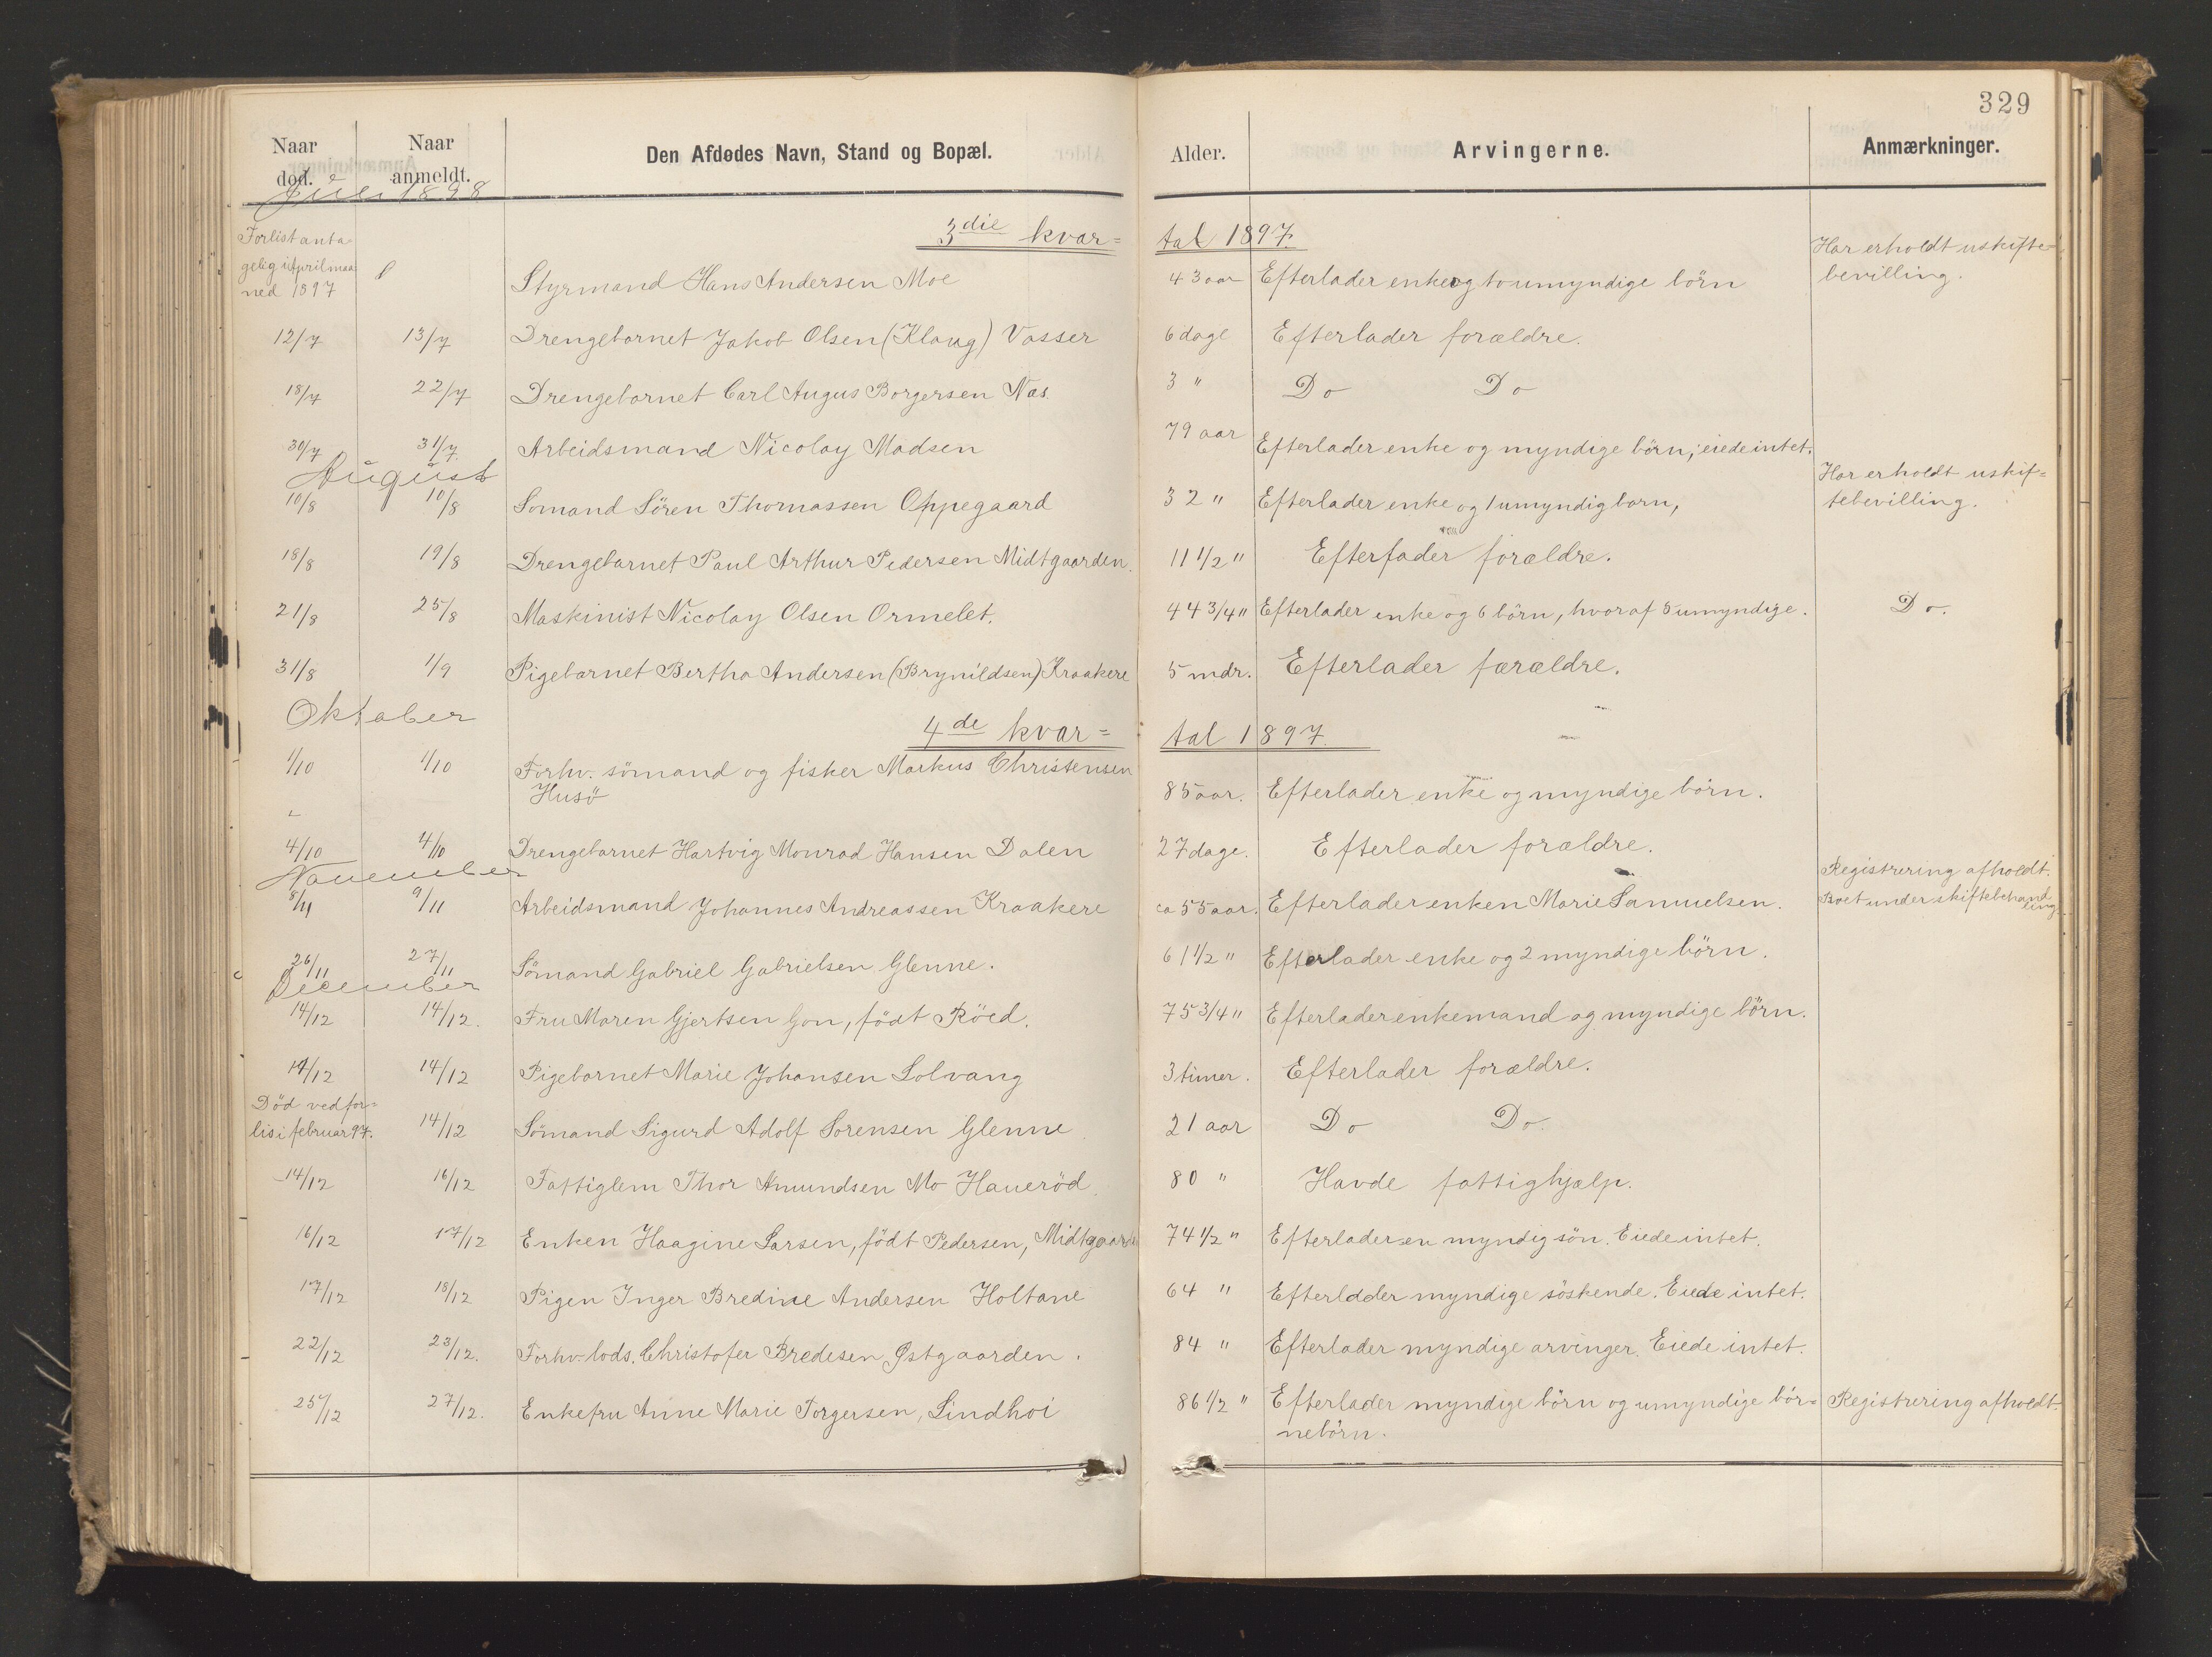 329
Naar død. Naar anmeldt. Den Afdødes Navn, Stand og Bopæl. Alder. Arvingerne. Anmærkninger.
Juli 1898
3die kvar= tal 1897.
Forlist anta=
gelig i April maa=
ned 1897
Styrmand Hans Andersen Moe 43 aar Efterlader enke og to umyndige börn Har erholdt uskifte=
bevilling.
12/7 13/7 Drengebarnet Jakob Olsen (Klaug) Vasser 6 dage Efterlader forældre.
18/7 22/7 Drengebarnet Carl Augus Borgersen Næs. 3 " Do Do
30/7 31/7 Arbeidsmand Nicolay Madsen 79 aar Efterlader enke og myndige börn; eiede intet.
August
10/8 10/8 Somand Sören Thomassen Oppegaard 32 " Efterlader enke og 1 umyndig barn, Har erholdt uskif=
tebevilling.
18/8 19/8 Drengebarnet Paul Arthur Pedersen Midtgaarden. 11 1/2 " Efterlader forældre.
21/8 25/8 Maskinist Nicolay Olsen Ormelet. 44 3/4 " Efterlader enke og 6 börn, hvoraf 5 umyndige. Do.
31/8 1/9 Pigebarnet Bertha Andersen (Brynildsen) Kraakere 5 mdr. Efterlader forældre.
Oktober
4de kvar= tal 1897.
1/10 1/10 Forhv. sömand og fisker Markus Christensen
Husö 85 aar. Efterlader enke og myndige börn.
4/10 4/10 Drengebarnet Hartvig Monrad Hansen Dalen 27 dage. Efterlader forældre.
November
8/11 9/11 Arbeidsmand Johannes Andreassen Kraakere ca 55 aar. Efterlader enken Marie Samuelsen. Registrering afholdt.
Boet under skiftebehand
ling.
26/11 27/11 Sömand Gabriel Gabrielsen Glenne. 61 1/2 " Efterlader enke og 2 myndige börn.
December
14/12 14/12. Fru Maren Gjertsen Gon, födt Röed. 75 3/4 " Efterlader enkemand og myndige börn.
14/12 14/12 Pigebarnet Marie Johansen Solvang 3 timer. Efterlader forældre.
Död ved for=
lis i februar 97. 14/12 Sömand Sigurd Adolf Sorensen Glenne 21 aar Do Do.
14/12 16/12 Fattiglem Thor Amundsen Mo Haueröd. 80 " Havde fattighjælp.
16/12 17/12 Enken Haagine Larsen, födt Pedersen, Midtgaarden 74 1/2 " Efterlader en myndig sön. Eiede intet.
17/12 18/12 Pigen Inger Bredine Andersen Holtane 64 " Efterlader myndige söskende. Eiede intet.
22/12 23/12. Forhv. lods. Christofer Bredesen Østgaarden. 84 " Efterlader myndige arvinger. Eiede intet.
25/12 27/12. Enkefru Anne Marie Torgersen, Lindhoi 86 1/2 " Efterlader myndige börn og umyndige bör=
nebörn. Registrering afholdt.